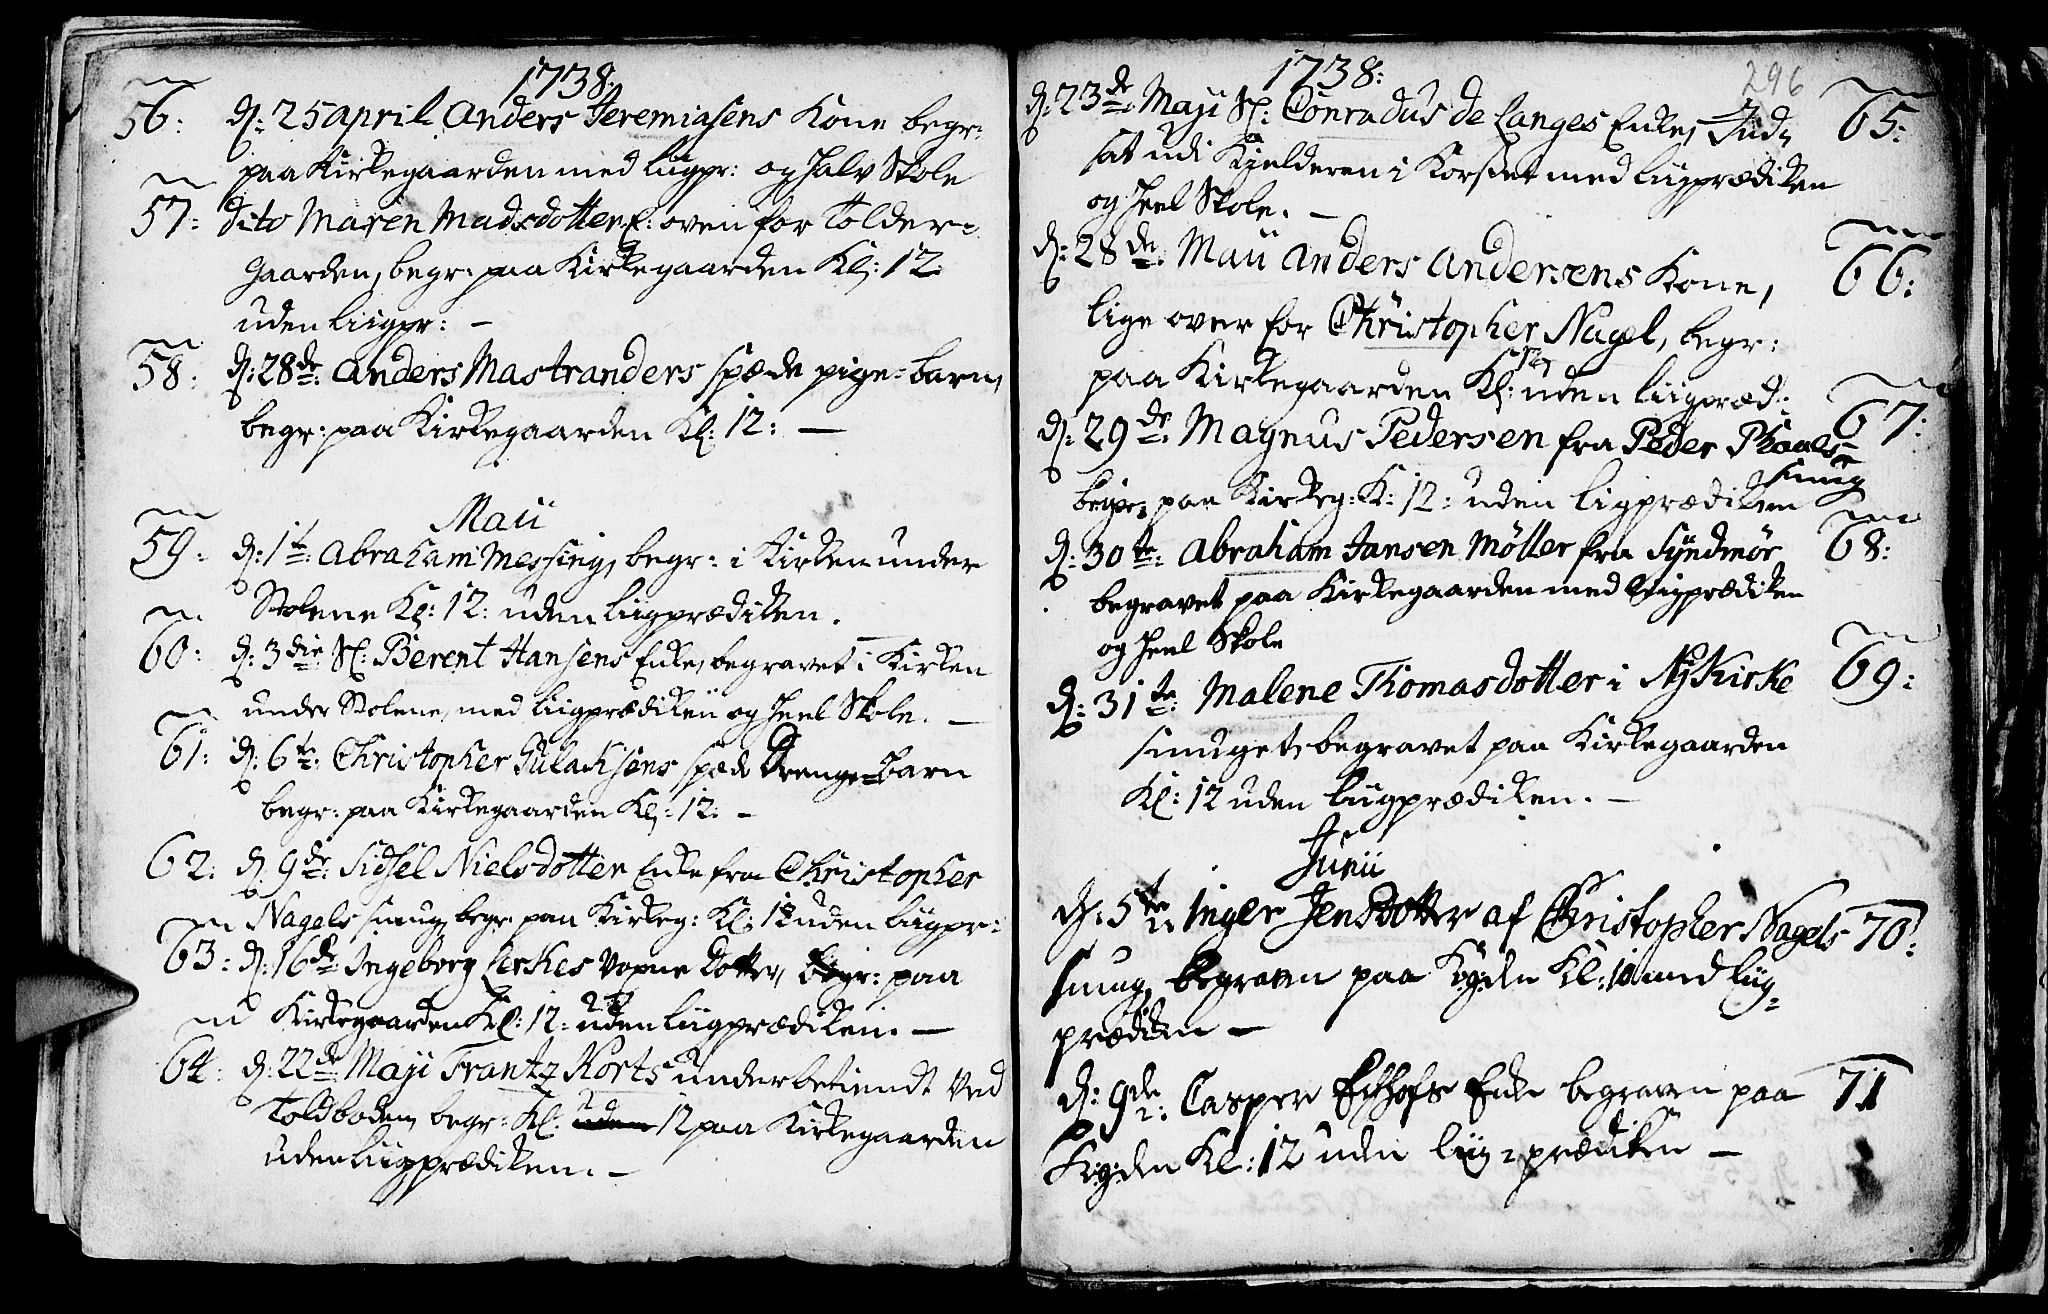 1738:
56: d: 25 april Anders Jeremiasens Kone begr:
paa Kirkegaarden med Liigpr: og halv Skole
57: dito Maren Madsdotter E: oven for Tolder-
gaarden, begr: paa Kirkegaarden Kl: 12
uden liigpr: –
58: d: 28de: Anders Mastranders spæde pige-barn,
begr: paa Kirkegaarden Kl: 12: –
Maii
59: d: 1te: Abraham Messing, begr: i Kirken under
Stolene Kl: 12: uden liigprædiken.
60: d: 3die: Sl: Berent Hansens Enke, begravet i Kirken
under Stolene, med liigprædiken og heel Skole. –
61: d: 6te: Christopher Gulacksens spæde Drenge-barn
begr: paa Kirkegaarden Kl: 12: –
62: d: 9de: Sidsel Nielsdotter Enke fra Christopher
Nagels smug, begr: paa Kirkeg: Kl: 12 uden liigpr:
63: d: 16de: Ingeborg Lerkes voxne Dotter, begr: paa
Kirkegaarden Kl: 12: uden liigprædiken. –
64: d: 22de Maji Frantz Korts underbetiendt ved
Toldboden, begr: Kl: uden 12 paa Kirkegaarden
uden liigprædiken. –
1738:
296
d: 23de: Maji Sl: Conradus de Langes Enke, Ind- 65:
sat udi Kjelderen i Korset med liigprædiken
og heel Skole. –
d: 28de: Maii Anders Andersens Kone, 66:
lige over for Christopher Nagel, begr:
paa Kirkegaarden Kl: 12 uden liigpræd:
d: 29de: Magnus Pedersen fra Peder Thoues- 67:
smug
begr: paa Kirkeg: K: 12: uden ligprædiken
d: 30te: Abraham Jansen Möller fra Syndmör 68:
begravet paa Kirkegaarden med liigprædiken
og heel Skole
d: 31te: Malene Thomasdotter i NyKirke 69:
smuget, begravet paa Kirkegaarden
Kl: 12 uden liigprædiken. –
Junii
d: 5te Inger Jensdotter af Christopher Nagels 70:
smug, begraven paa Kigden Kl: 10 med liig-
prædiken –
d: 9de: Casper Enke begraven paa 71
Kigden Kl: 12 uden liig-prædiken –